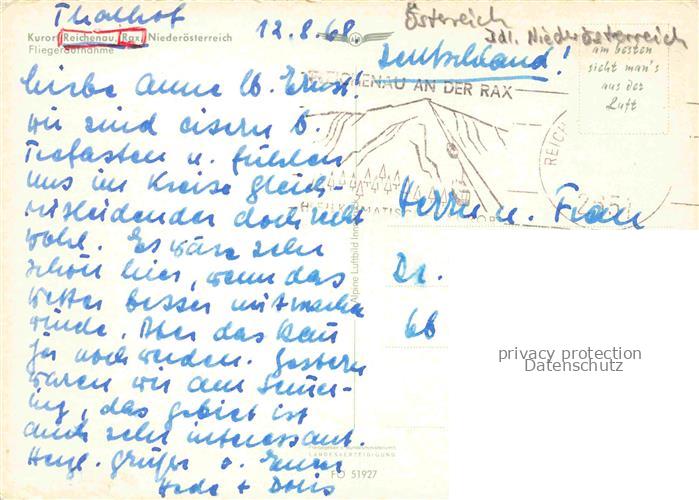 Thalhof
12.8.68
Österreich
Idl. Niederösterreich
Kurort Reichenau, Rax, Niederösterreich
Fliegeraufnahme
Deutschland!
am besten
sieht man's
aus der
Luft
REICHENAU AN DER RAX
REICH
Liebe Anne u. Ernst!
wir sind eisern b.
Teefasten u. fühlen
uns im Kreise gleich
mitleidender doch recht
wohl. Es wäre sehr
schön hier, wenn das
Wetter besser mitmachen
würde. Aber das kann
ja noch werden. Gestern
waren wir am Semmer-
ing, das Gebiet ist
auch sehr interessant.
Herzl. Grüße v. Euren
Hede + Doris
Herrn u. Frau
Dr.
66
Alpine Luftbild Inns
privacy protection
Datenschutz
LANDESVERTEIDIGUNG
FO 51927